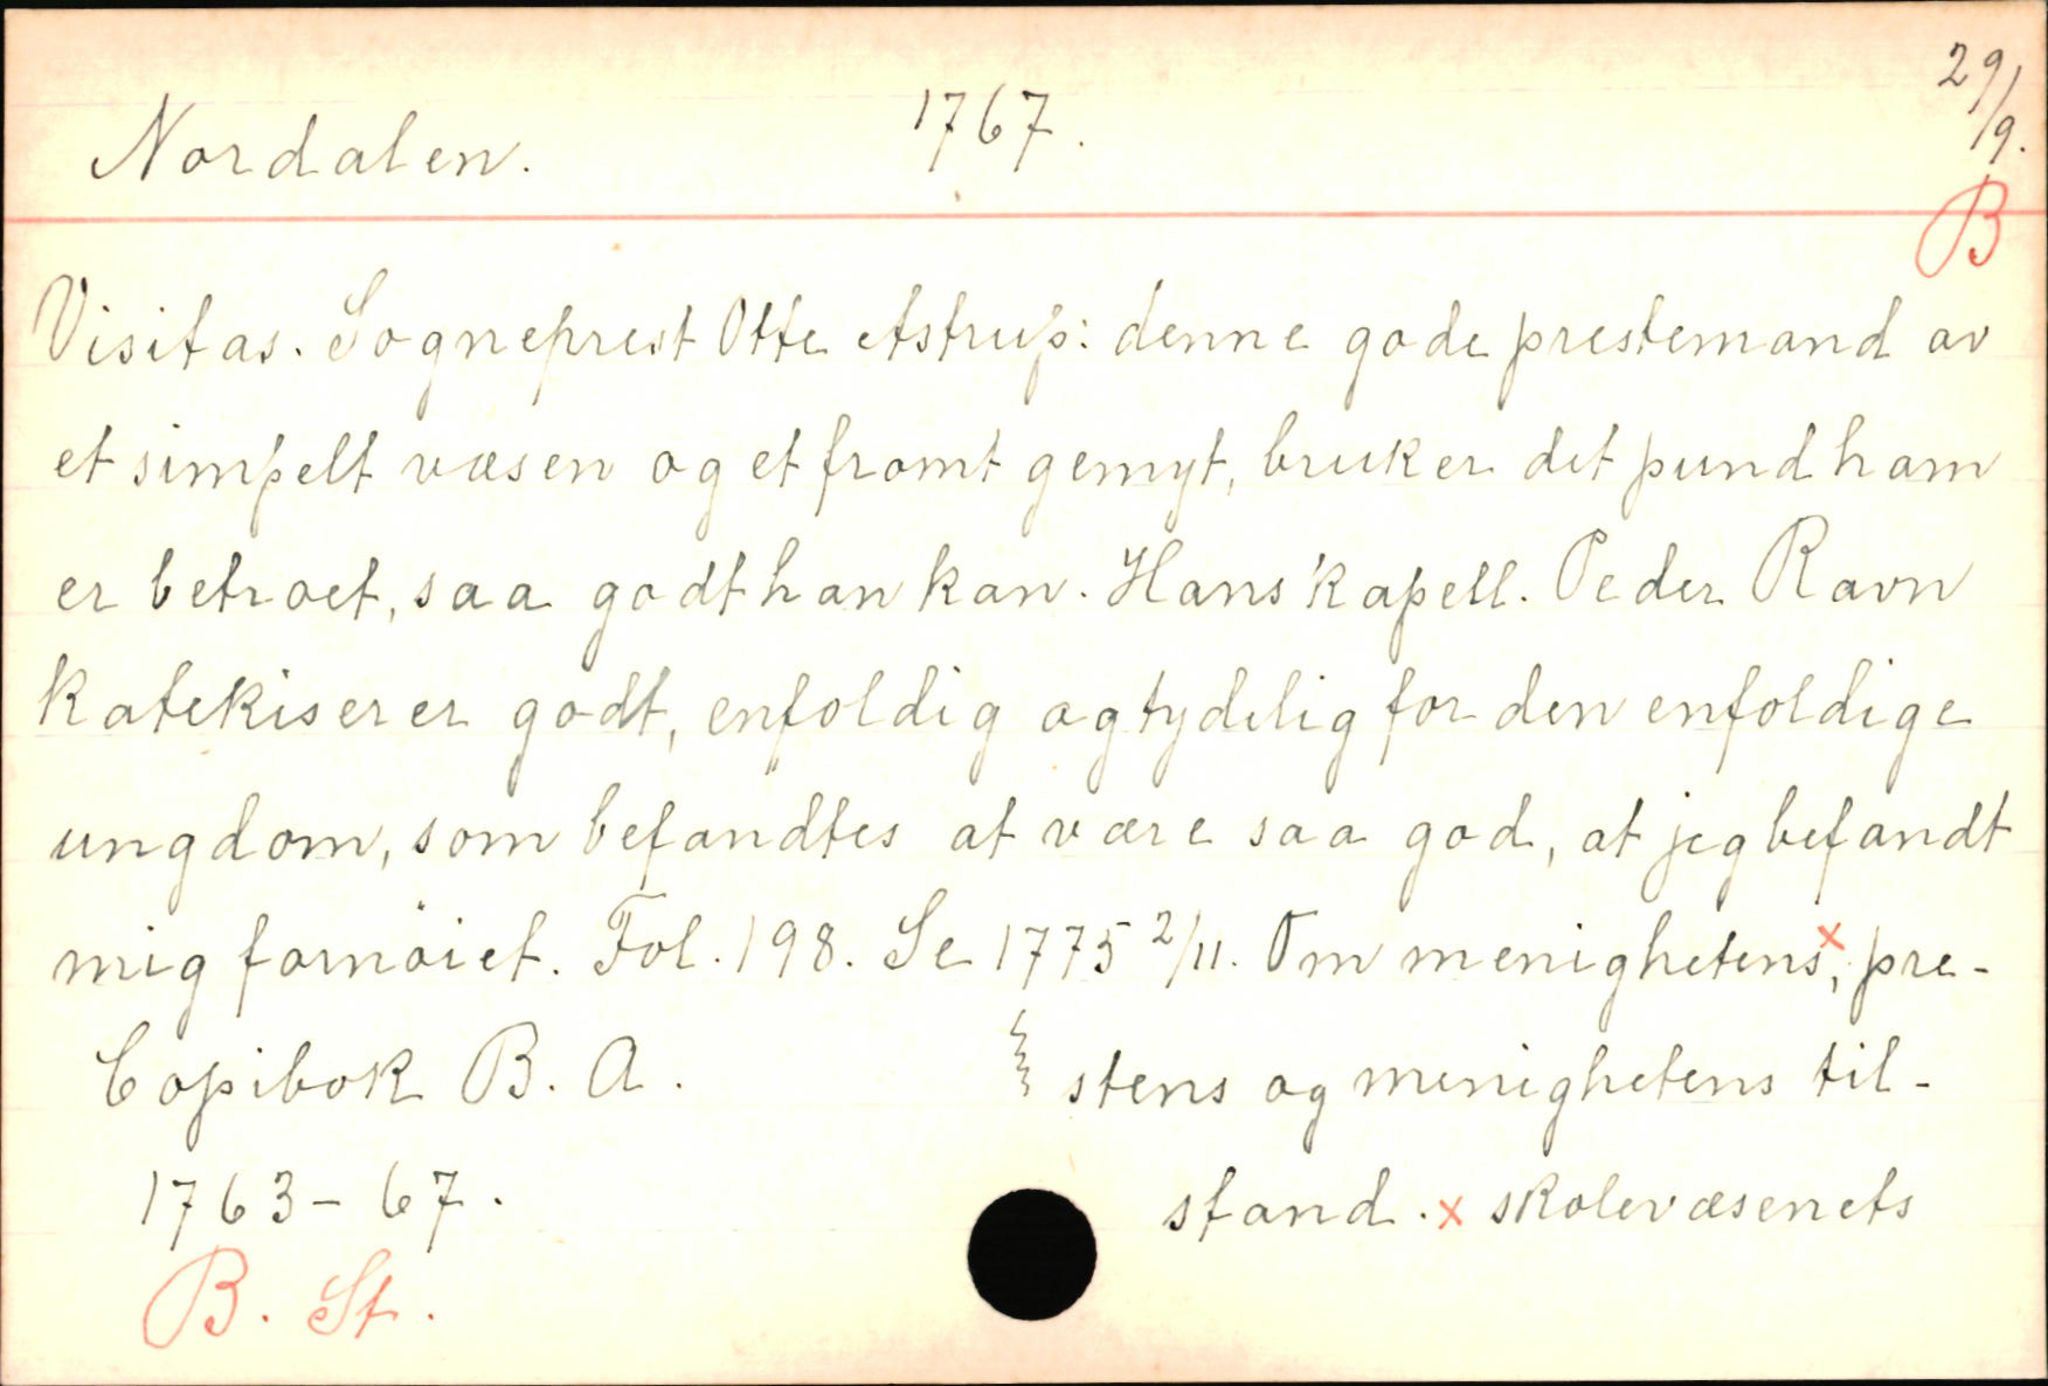 Nordalen. 1767. 29/9.
B
Visitas. Sogneprest Otte Astrup: denne gode prestemand av
et simpelt væsen og et fromt gemyt, bruker det pund ham
er betroet, saa godt han kan. Hans kapell. Peder Ravn
katekiserer godt, enfoldig og tydelig for den enfoldige
ungdom, som befandtes at være saa god, at jeg befandt
mig fornøiet. Fol. 198. Se 1775 2/11. Om menighetens,x pre-
Copibok B. A. stens og menighetens til-
1763-67. stand. x skolevæsenets
B. St.